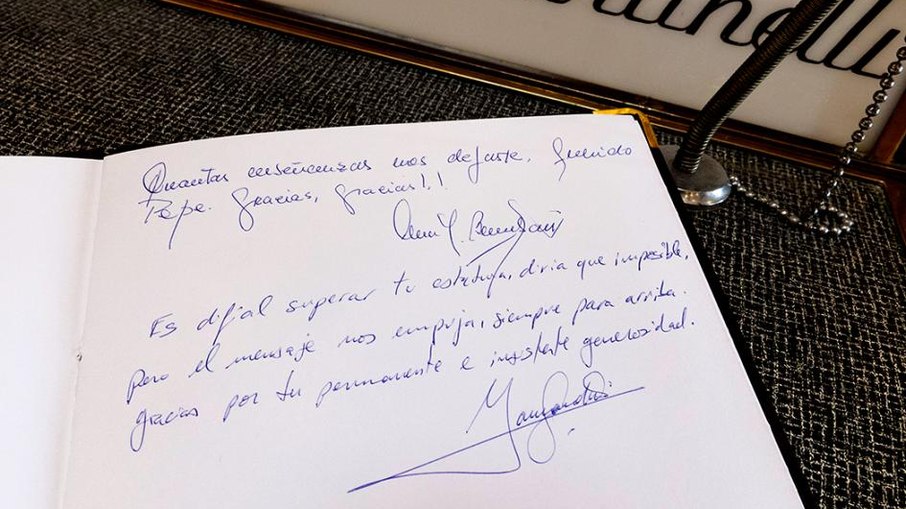 Quantas enseñanzas nos dejaste, querido
Pepe. Gracias, gracias!.!
Es difícil superar tu estatuja, diria que imposible,
pero el mensaje nos empuja, siempre para arriba.
gracias por tu permanente e insistente generosidad.